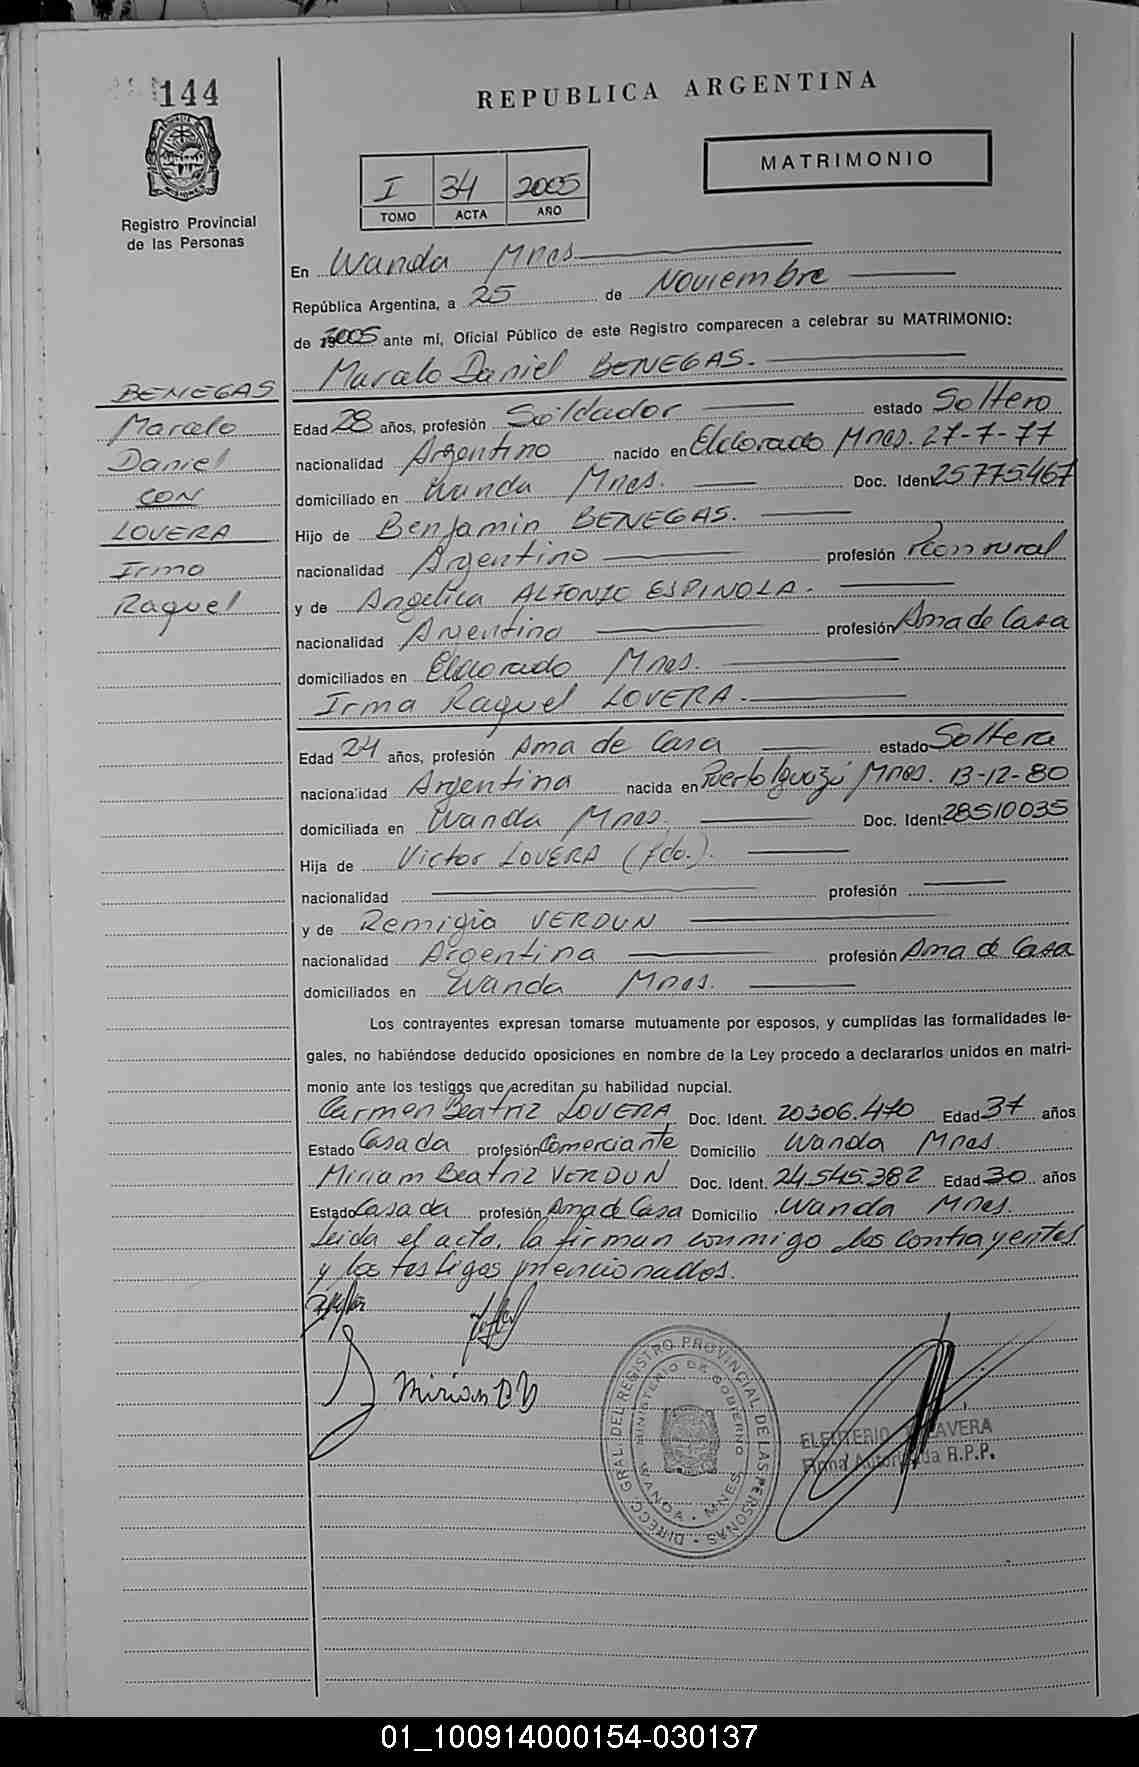 144
REPUBLICA ARGENTINA
MATRIMONIO
I 34 2005
TOMO ACTA AÑO
Registro Provincial
de las Personas
En Wanda Mnes
República Argentina, a 25 de Noviembre
de 2005 ante mí, Oficial Público de este Registro comparecen a celebrar su MATRIMONIO:
Marcelo Daniel BENEGAS.
BENEGAS
Marcelo
Daniel
CON
LOVERA
Irma
Raquel
Edad 28 años, profesión Soldador estado Soltero
nacionalidad Argentino nacido en Eldorado Mnes. 27-7-77
domiciliado en Wanda Mnes. Doc. Ident. 25.775.467
Hijo de Benjamin BENEGAS.
nacionalidad Argentino profesión Peon rural
y de Angelica ALFONZO ESPINOLA.
nacionalidad Argentina profesión Ama de Casa
domiciliados en Eldorado Mnes.
Irma Raquel LOVERA.
Edad 24 años, profesión Ama de Casa estado Soltera
nacionalidad Argentina nacida en Puerto Iguazú Mnes. 13-12-80
domiciliada en Wanda Mnes. Doc. Ident. 28510035
Hija de Victor LOVERA (fdo.).
nacionalidad profesión
y de Remigia VERDUN
nacionalidad Argentina profesión Ama de Casa
domiciliados en Wanda Mnes.
Los contrayentes expresan tomarse mutuamente por esposos, y cumplidas las formalidades le-
gales, no habiéndose deducido oposiciones en nombre de la Ley procedo a declararlos unidos en matri-
monio ante los testigos que acreditan su habilidad nupcial.
Carmen Beatriz LOVERA Doc. Ident. 20306.470 Edad 37 años
Estado Casada profesión Comerciante Domicilio Wanda Mnes.
Miriam Beatriz VERDUN Doc. Ident. 24.545.382 Edad 30 años
Estado Casada profesión Ama de Casa Domicilio Wanda Mnes.
Leida el acta, la firman conmigo los contrayentes
y los testigos mencionados.
Mirian B V
DIRECC. GRAL. DEL REGISTRO PROVINCIAL DE LAS PERSONAS
MINISTERIO DE GOBIERNO
WANDA - MNES.
ELEUTERIO
Firma Autorizada R.P.P.
01_100914000154-030137